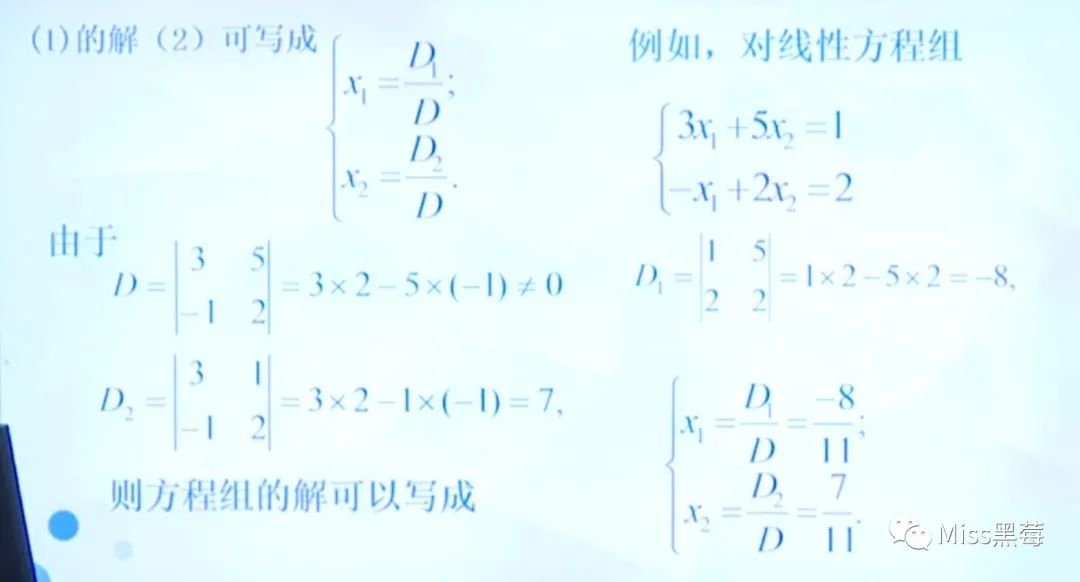 (1)的解（2）可写成
{ x₁ = D₁/D;
x₂ = D₂/D.
例如，对线性方程组
{ 3x₁+5x₂=1
−x₁+2x₂=2
由于
D = |3 5; −1 2| = 3×2−5×(−1) ≠ 0
D₁ = |1 5; 2 2| = 1×2−5×2 = −8,
D₂ = |3 1; −1 2| = 3×2−1×(−1) = 7,
则方程组的解可以写成
{ x₁ = D₁/D = −8/11;
x₂ = D₂/D = 7/11.
Miss黑莓